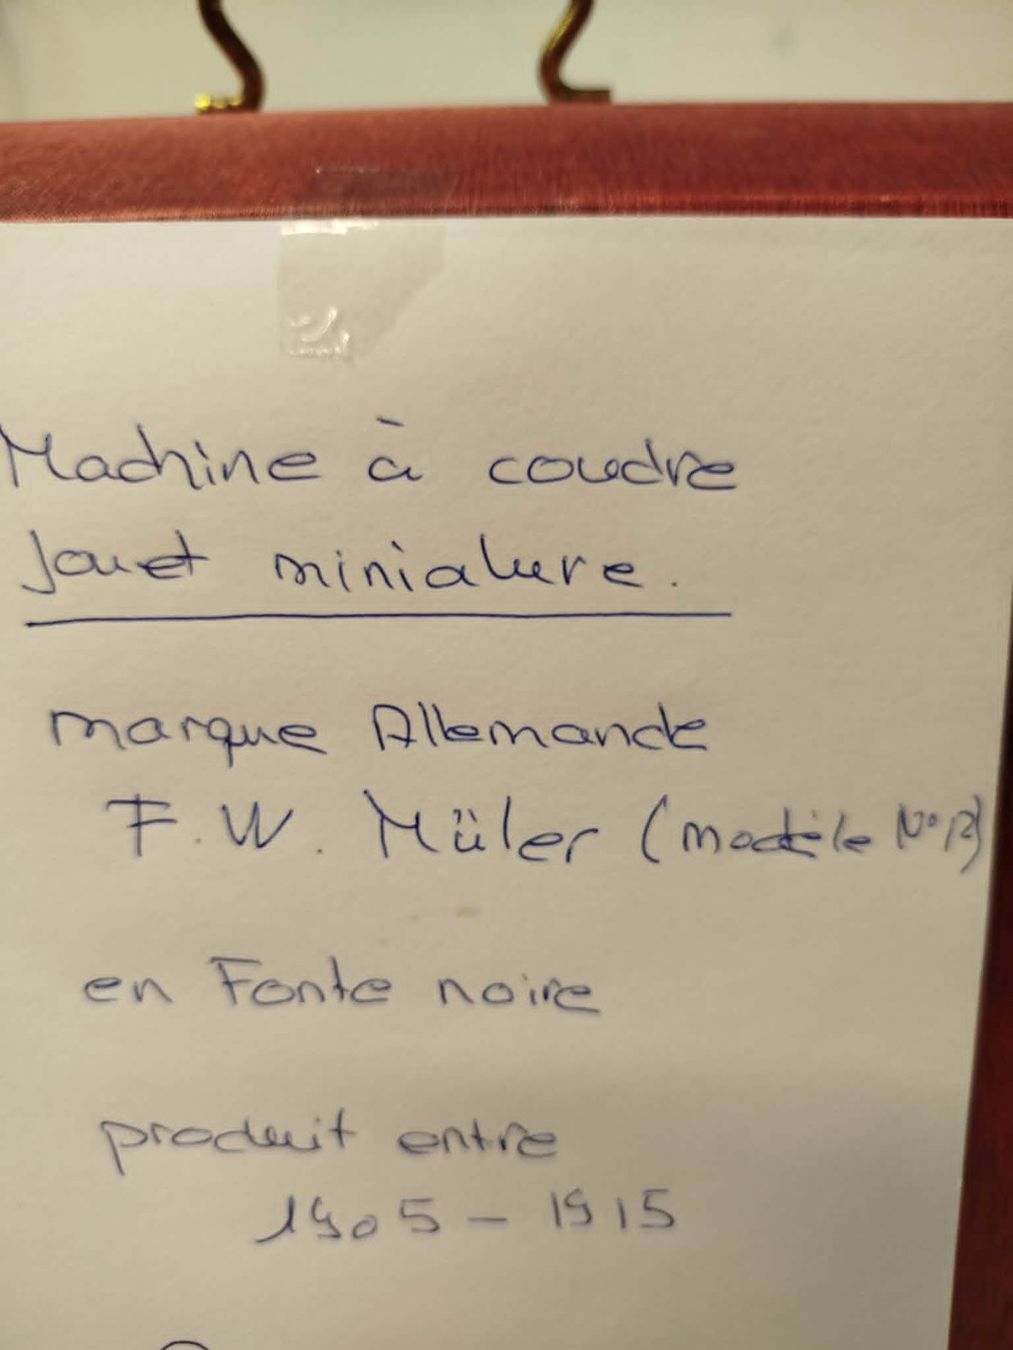 Machine à coudre
Jouet miniature.
marque Allemande
F. W. Müler (modèle N° 12)
en Fonte noire
produit entre
1905 – 1915